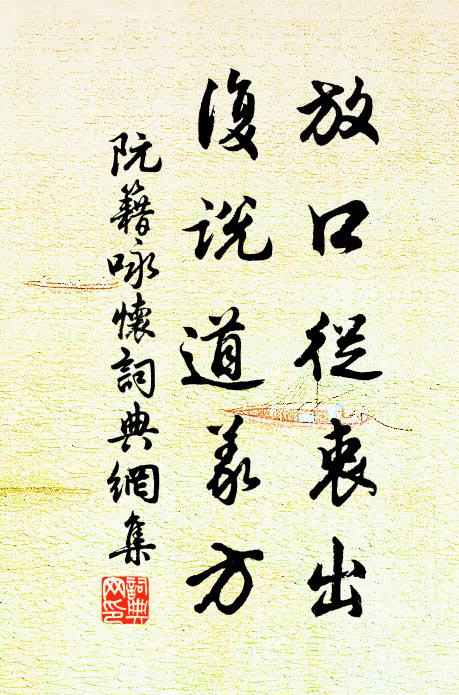 放口從衷出
復說道義方
阮籍咏懷詞典網集
詞典
网印